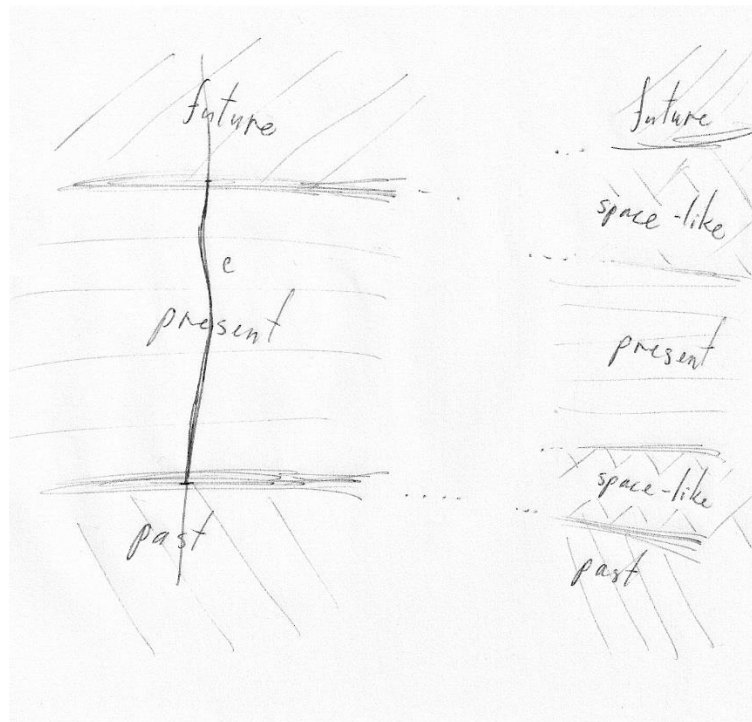 future
e
present
past
future
space-like
present
space-like
past